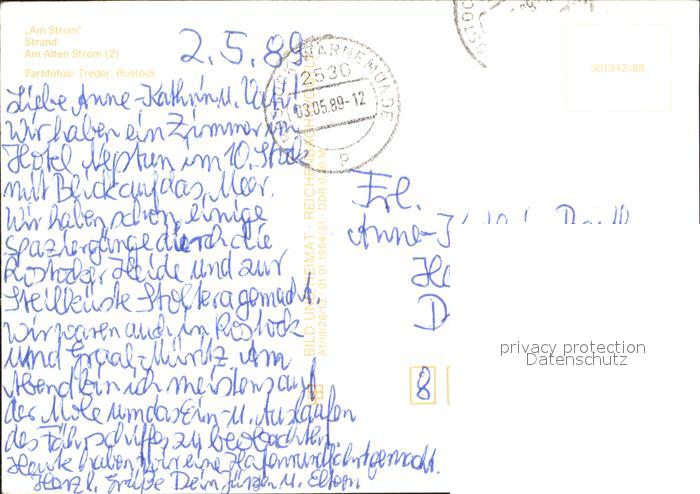 „Am Strom"
Strand
Am Alten Strom (2)
Farbfotos: Treder, Rostock
2.5.89
WARNEMÜNDE
2530
03.05.89-12
P
301342/88
Liebe Anne-Kathrin u.
Wir haben ein Zimmer im
Hotel Neptun im 10. Stock
mit Blick auf das Meer.
Wir haben schon einige
Spaziergänge durch die
Rostocker Heide und zur
Steilküste Stoltera gemacht.
Wir waren auch in Rostock
und Graal-Müritz. Am
Abend bin ich meistens auf
der Mole um das Ein- u. Auslaufen
des Fährschiffes zu beobachten.
Heute haben wir eine Hafenrundfahrt gemacht.
Herzl. Grüße Dein Jürgen u. Eltern
BILD UND HEIMAT · REICHENBACH
Frl.
Anne-
8
privacy protection
Datenschutz